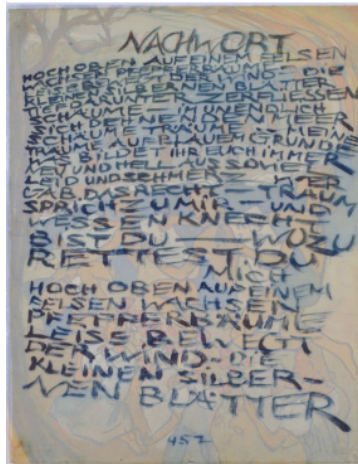 NACHWORT
HOCH OBEN AUF EINEM FELSEN
PFEFFERBÄUME
DER WIND – DIE
SILBERNEN BLÄTTER
DARUNTER ZERFLIESSEN
SCHÄUME UNENDLICH
MEER
SCHÄUME TRÄUME – MEIN
AUF BLAUEM GRUND
WAS BILDET IHR EUCH IMMER
NEU UND HELL AUS SOVIEL
LEID UND SCHMERZ
DAS RECHT – TRAUM
SPRICH ZU MIR – UND
WESSEN KNECHT
BIST DU – WOZU
RETTEST DU
MICH
HOCH OBEN AUF EINEM
FELSEN WACHSEN
PFEFFERBÄUME
LEISE BEWEGT
DER WIND – DIE
KLEINEN SILBER-
NEN BLÄTTER